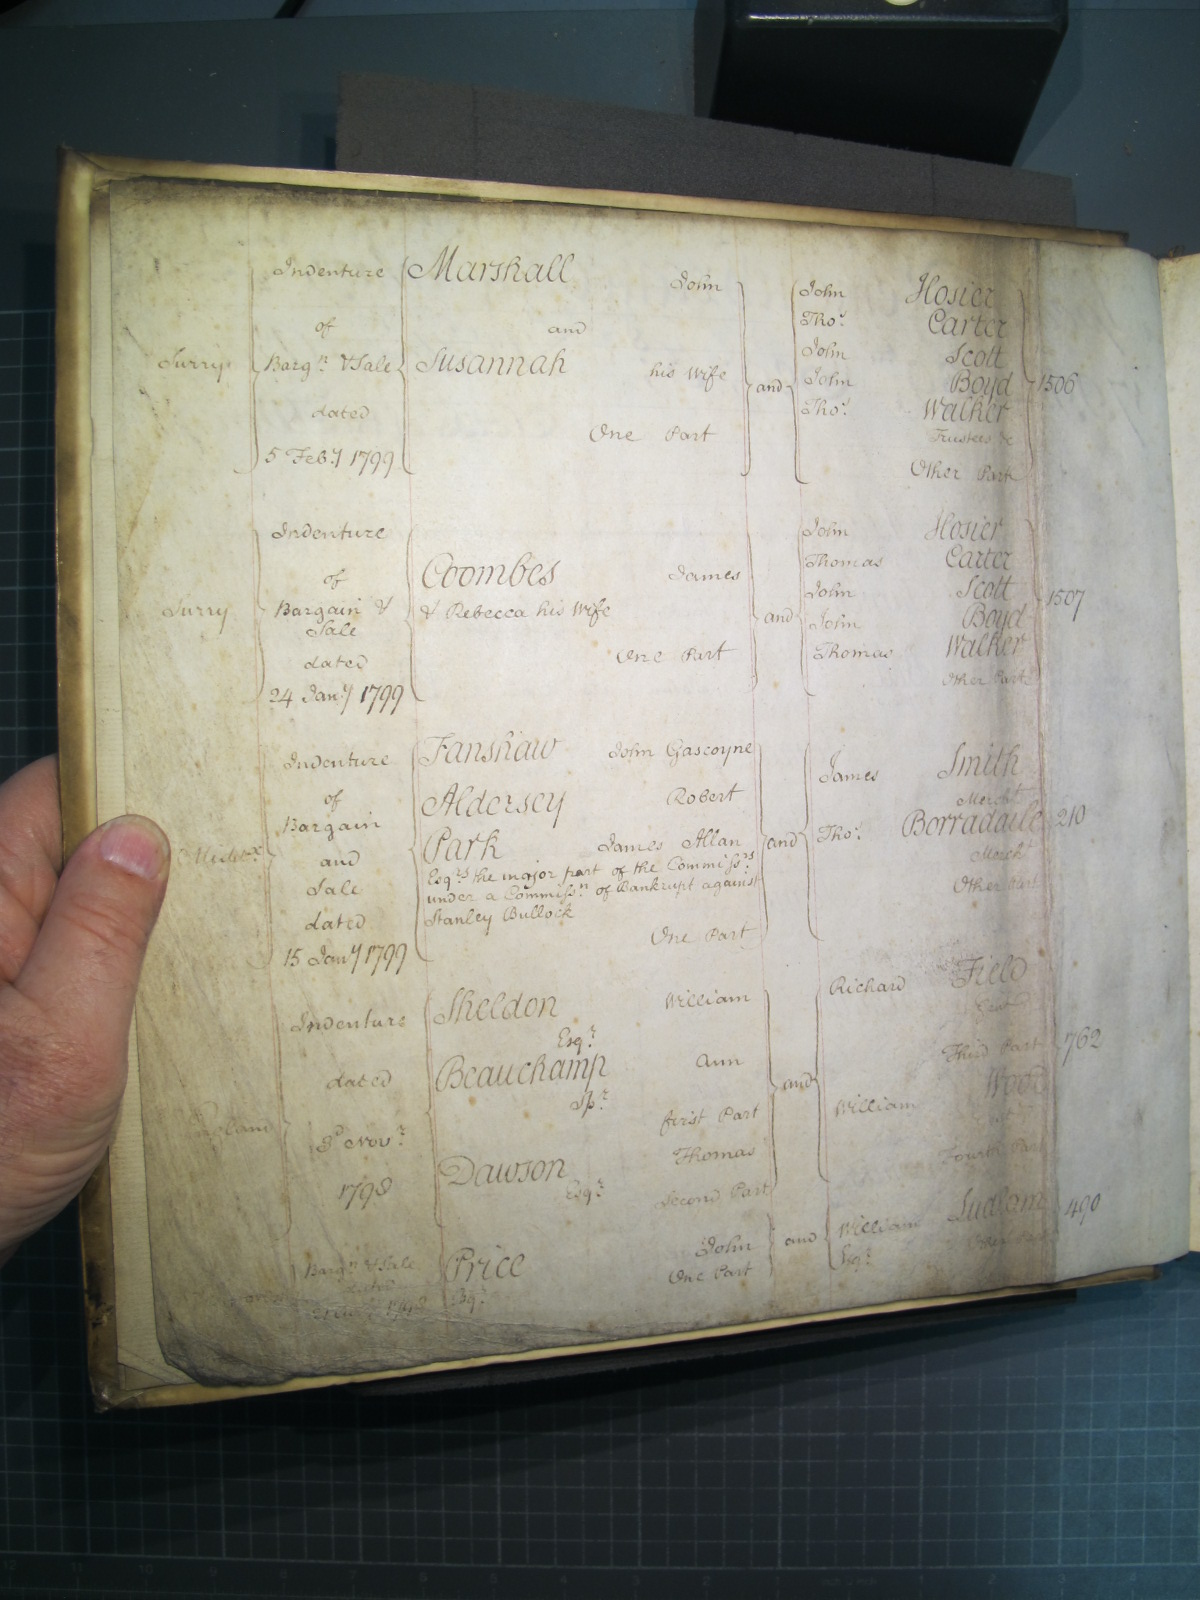 Indenture Marshall John John Hosier
of and Tho.r Carter
Surry Barg.n & Sale Susannah his Wife and John Scott
John Boyd 1506
dated Tho.s Walker
One Part Trustees &c
5 Feb.y 1799 Other Part
Indenture John Hosier
of Coombes James Thomas Carter
Surry Bargain & & Rebecca his Wife and John Scott 1507
Sale John Boyd
dated One Part Thomas Walker
24 Jan.y 1799 Other Part
Indenture Fanshaw John Gascoyne James Smith
of Aldersey Robert Merch.t
Bargain Park James Allan and Tho.s Borradaile 210
Midd.x and Esq.rs the major part of the Commiss.rs Merch.t
Sale under a Commiss.n of Bankrupt against Other Part
dated Stanley Bullock
15 Jan.y 1799 One Part
Indenture Sheldon William Richard Field
Esq.r
dated Beauchamp Ann and Third Part 762
Sp.r
England 3.d Nov.r first Part William Wood
1798 Dawson Thomas Fourth Part
Esq.r Second Part
Barg.n & Sale Price John and William Ludlam 490
dated Esq.r One Part Esq.r Other Part
1798